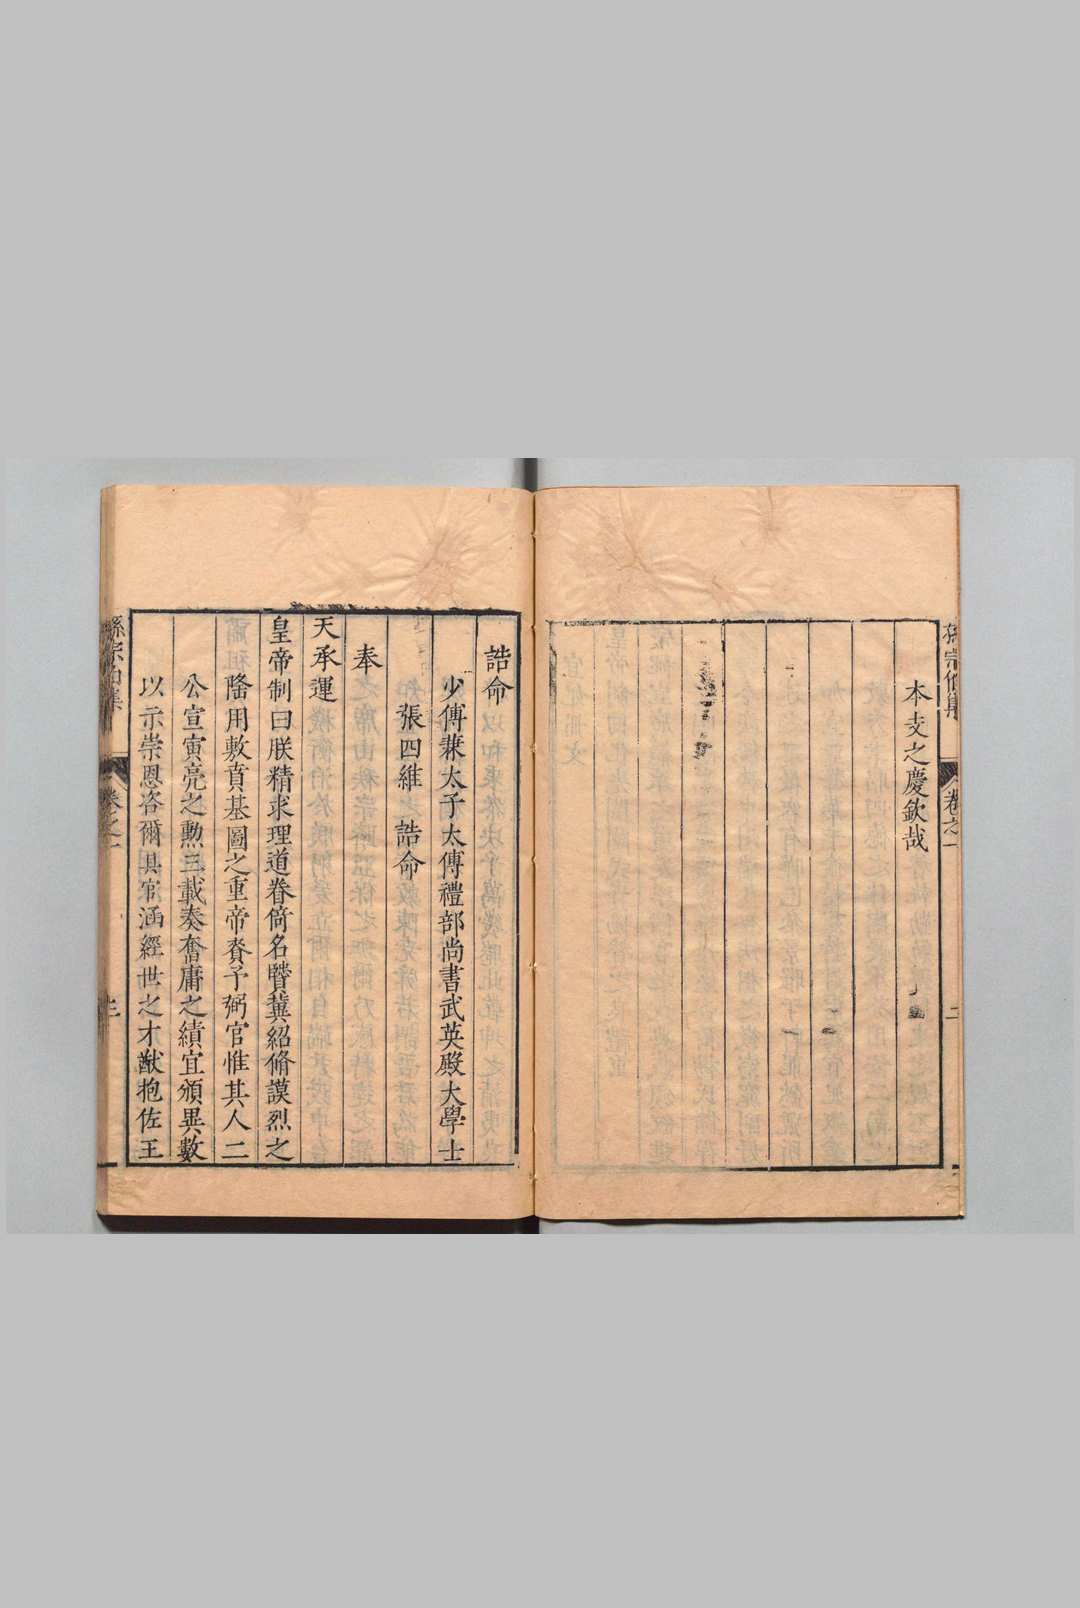 本支之慶欽哉
卷之一
二
誥命
少傅兼太子太傅禮部尚書武英殿大學士
張四維　誥命
奉
天承運
皇帝制曰朕精求理道眷倚名贒兾紹脩謨烈之
隆用敷賁基圖之重帝賚予弼官惟其人二
公宣寅亮之勲三載奏奮庸之績宜頒異數
以示崇恩咨爾具官涵經世之才猷抱佐王